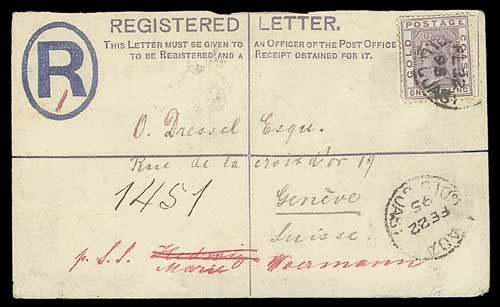 REGISTERED LETTER.
THIS LETTER MUST BE GIVEN TO AN OFFICER OF THE POST OFFICE
TO BE REGISTERED, AND A RECEIPT OBTAINED FOR IT.
R
1
POSTAGE
GOLD COAST
ONE SHILLING
O. Dressel Esqu.
Rue de la croix d'or 19
1451 Genève
Suisse.
p. S.S. Hedwig Woermann
Marie
ADDA
FE 22
95
GOLD COAST